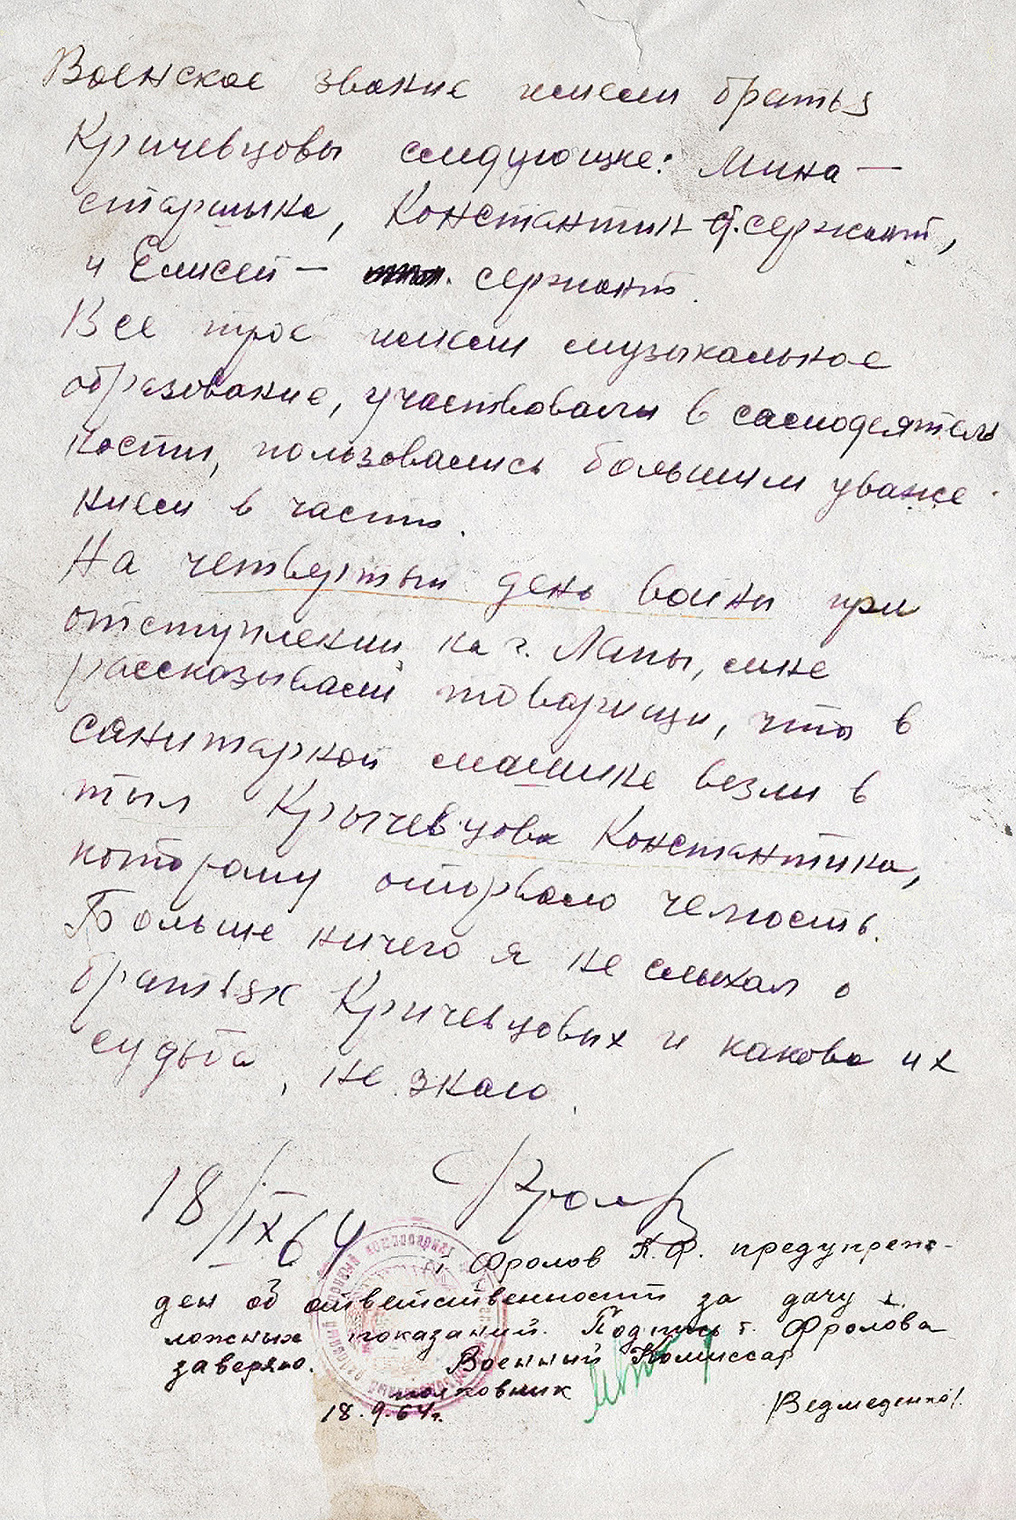 Военское звание имели братья
Кричевцовы следующие: Мина —
старшина, Константин ст. сержант,
и Елисей — сержант.
Все трое имели музыкальное
образование, участвовали в самодеятель
ности, пользовались большим уваже
нием в части.
На четвертый день войны при
отступлении на г. Лапы, мне
рассказывали товарищи, что в
санитарной машине везли в
тыл Крычевцова Константина,
которому оторвало челюсть.
Больше ничего я не слыхал о
братьях Кричевцовых и какова их
судьба, не знаю.
18/IX 64 Фролов
Фролов П.Ф. предупреж-
ден об ответственности за дачу
ложных показаний. Подпись т. Фролова
заверяю. Военный Комиссар
полковник
18.9.64г. /Ведмеденко/.